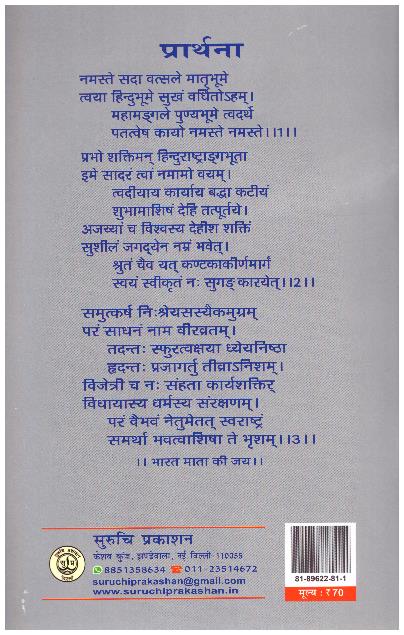 प्रार्थना
नमस्ते सदा वत्सले मातृभूमे
त्वया हिन्दुभूमे सुखं वर्धितोऽहम्।
महामङ्गले पुण्यभूमे त्वदर्थे
पतत्वेष कायो नमस्ते नमस्ते।।1।।
प्रभो शक्तिमन् हिन्दुराष्ट्राङ्गभूता
इमे सादरं त्वां नमामो वयम्।
त्वदीयाय कार्याय बद्धा कटीयं
शुभामाशिषं देहि तत्पूर्तये।
अजय्यां च विश्वस्य देहीश शक्तिं
सुशीलं जगद्येन नम्रं भवेत्।
श्रुतं चैव यत् कण्टकाकीर्णमार्गं
स्वयं स्वीकृतं नः सुगङ् कारयेत्।।2।।
समुत्कर्ष निःश्रेयसस्यैकमुग्रम्
परं साधनं नाम वीरव्रतम्।
तदन्तः स्फुरत्वक्षया ध्येयनिष्ठा
हृदन्तः प्रजागर्तु तीव्राऽनिशम्।
विजेत्री च नः संहता कार्यशक्तिर्
विधायास्य धर्मस्य संरक्षणम्।
परं वैभवं नेतुमेतत् स्वराष्ट्रं
समर्था भवत्वाशिषा ते भृशम्।।3।।
।। भारत माता की जय।।
सुरुचि प्रकाशन
केशव कुंज, झण्डेवाला, नई दिल्ली-110055
8851358634 011-23514672
suruchiprakashan@gmail.com
www.suruchiprakashan.in
81-89622-81-1
मूल्य : ₹ 70